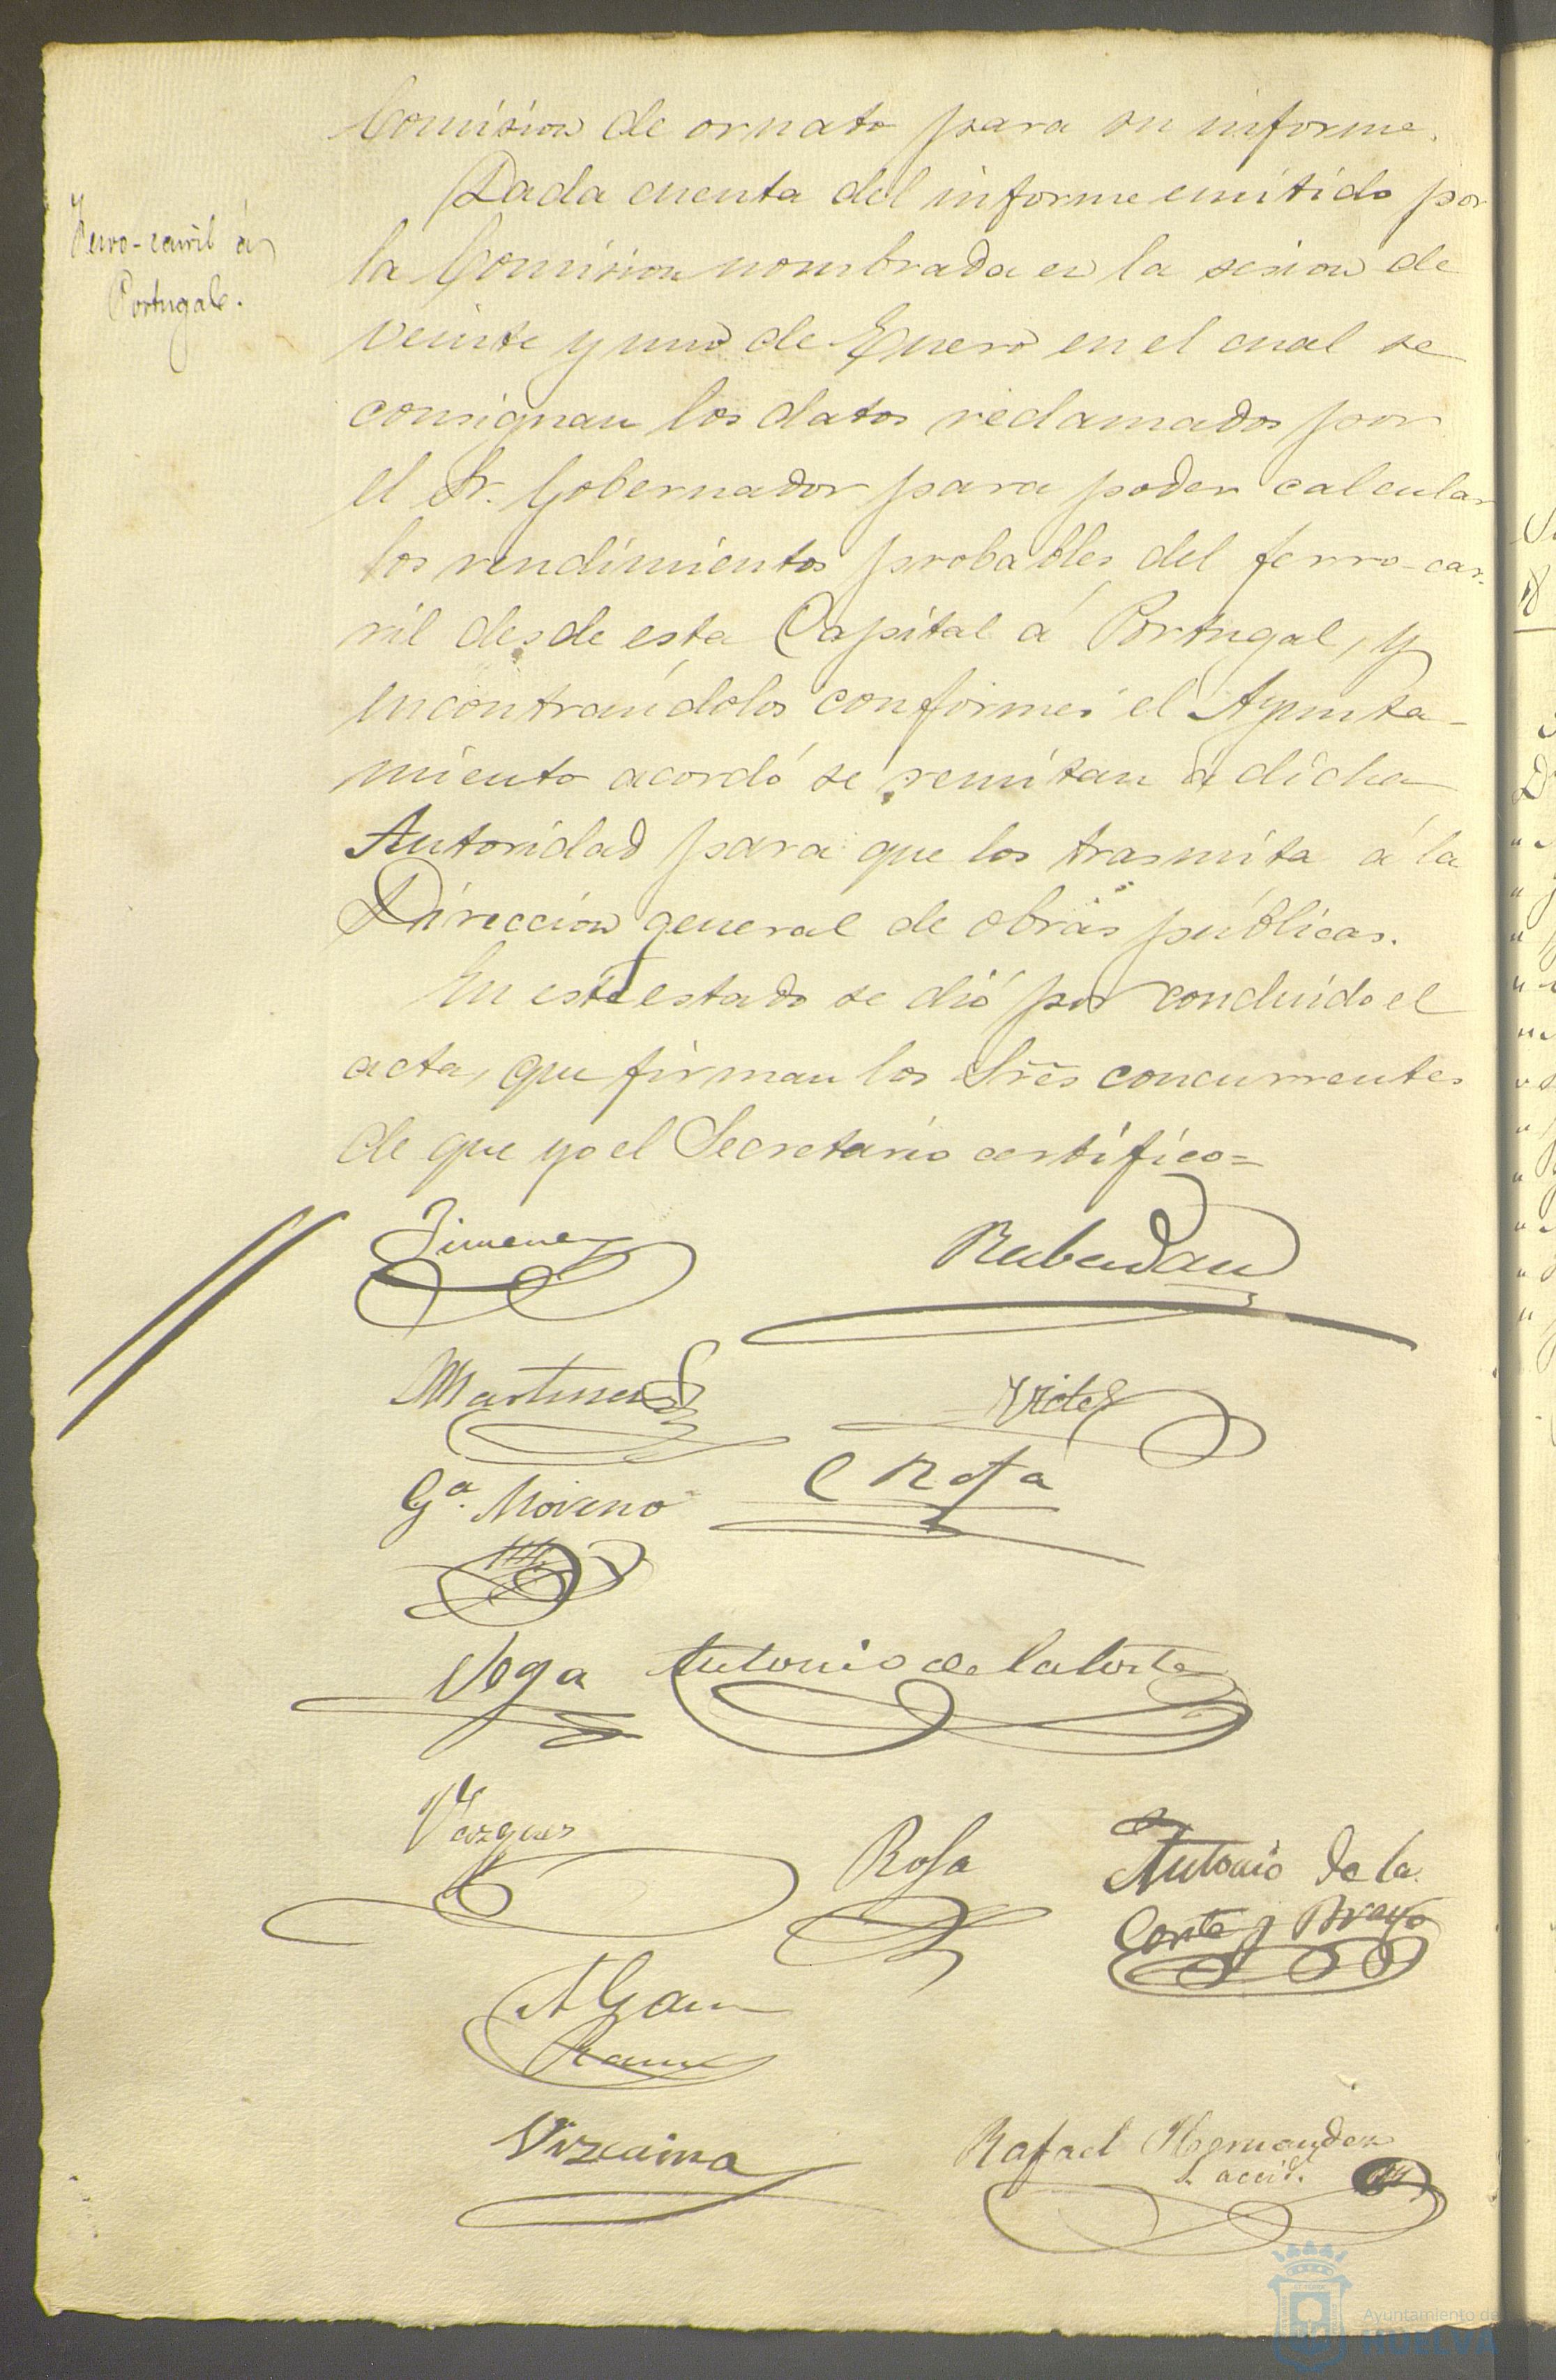 Comision de ornato para su informe.
Ferro-carril á
Portugal.
Dada cuenta del informe emitido por
la Comision nombrada en la sesion de
veinte y uno de Enero en el cual se
consignan los datos reclamados por
el Sr. Gobernador para poder calcular
los rendimientos probables del ferro-car-
ril desde esta Capital á Portugal, y
encontrándolos conformes el Ayunta-
miento acordó se remitan á dicha
Autoridad para que los trasmita á la
Direccion general de obras públicas.
En este estado se dió por concluido el
acta, que firman los Sres concurrentes
de que yo el Secretario certifico=
Jimenez
Martinez
Garcia
Gª. Moreno
Vega
Antonio de la Corte
Vazquez
Rosa
Antonio de la
Corte y Bravo
Vizcaino
Rafael Hernandez
S. accid.
Ayuntamiento de
HUELVA